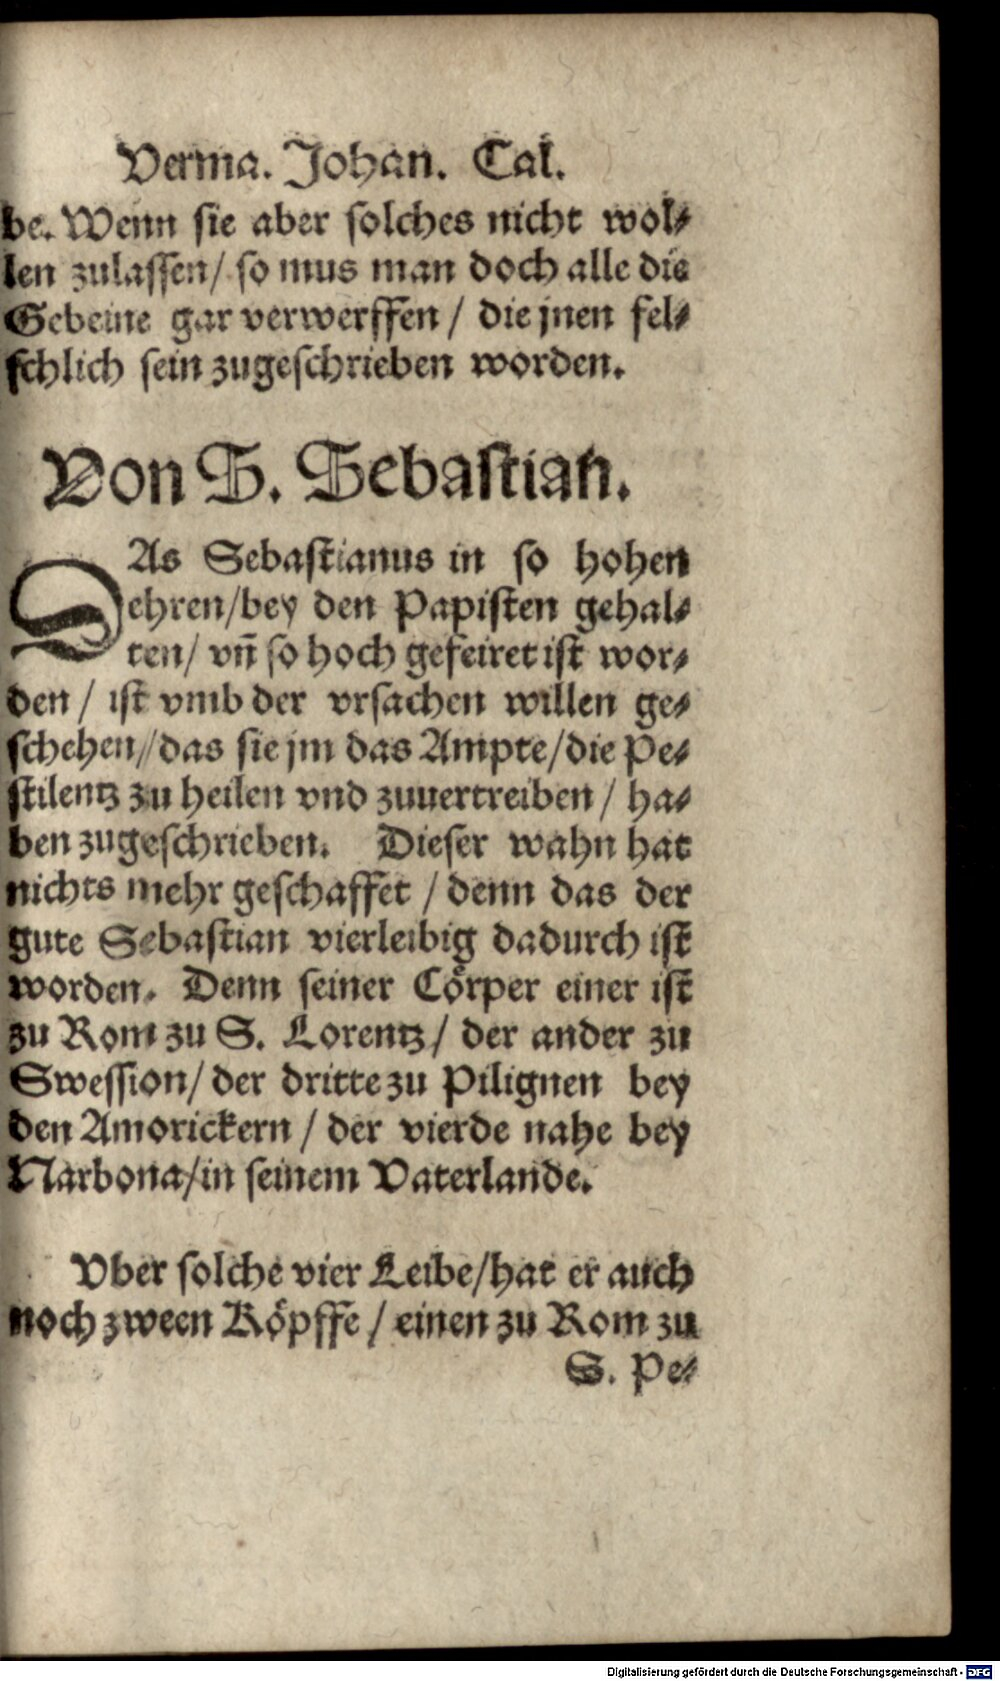 Verma. Johan. Cal.
be. Wenn sie aber solches nicht wol⸗
len zulassen/ so mus man doch alle die
Gebeine gar verwerffen / die jnen fel⸗
schlich sein zugeschrieben worden.
Von S. Sebastian.
DAs Sebastianus in so hohen
ehren/bey den Papisten gehal⸗
ten/ vñ so hoch gefeiret ist wor⸗
den / ist vmb der vrsachen willen ge⸗
schehen//das sie jm das Ampte/die Pe⸗
stilentz zu heilen vnd zuuertreiben / ha⸗
ben zugeschrieben. Dieser wahn hat
nichts mehr geschaffet / denn das der
gute Sebastian vierleibig dadurch ist
worden. Denn seiner Cörper einer ist
zu Rom zu S. Lorentz/ der ander zu
Swession/ der dritte zu Pilignen bey
den Amorickern / der vierde nahe bey
Narbona/in seinem Vaterlande.
Vber solche vier Leibe/hat er auch
noch zween Köpffe / einen zu Rom zu
S. Pe⸗
Digitalisierung gefördert durch die Deutsche Forschungsgemeinschaft - DFG